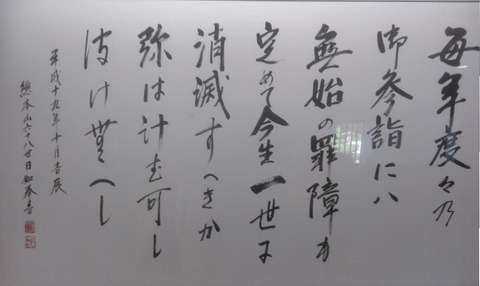 毎年度々乃
御参詣にハ
無始の罪障も
定めて今生一世に
消滅すへきか
弥は計む可し
波け無へし
平成十九年十月吉辰
総本山六十八世日如奉書